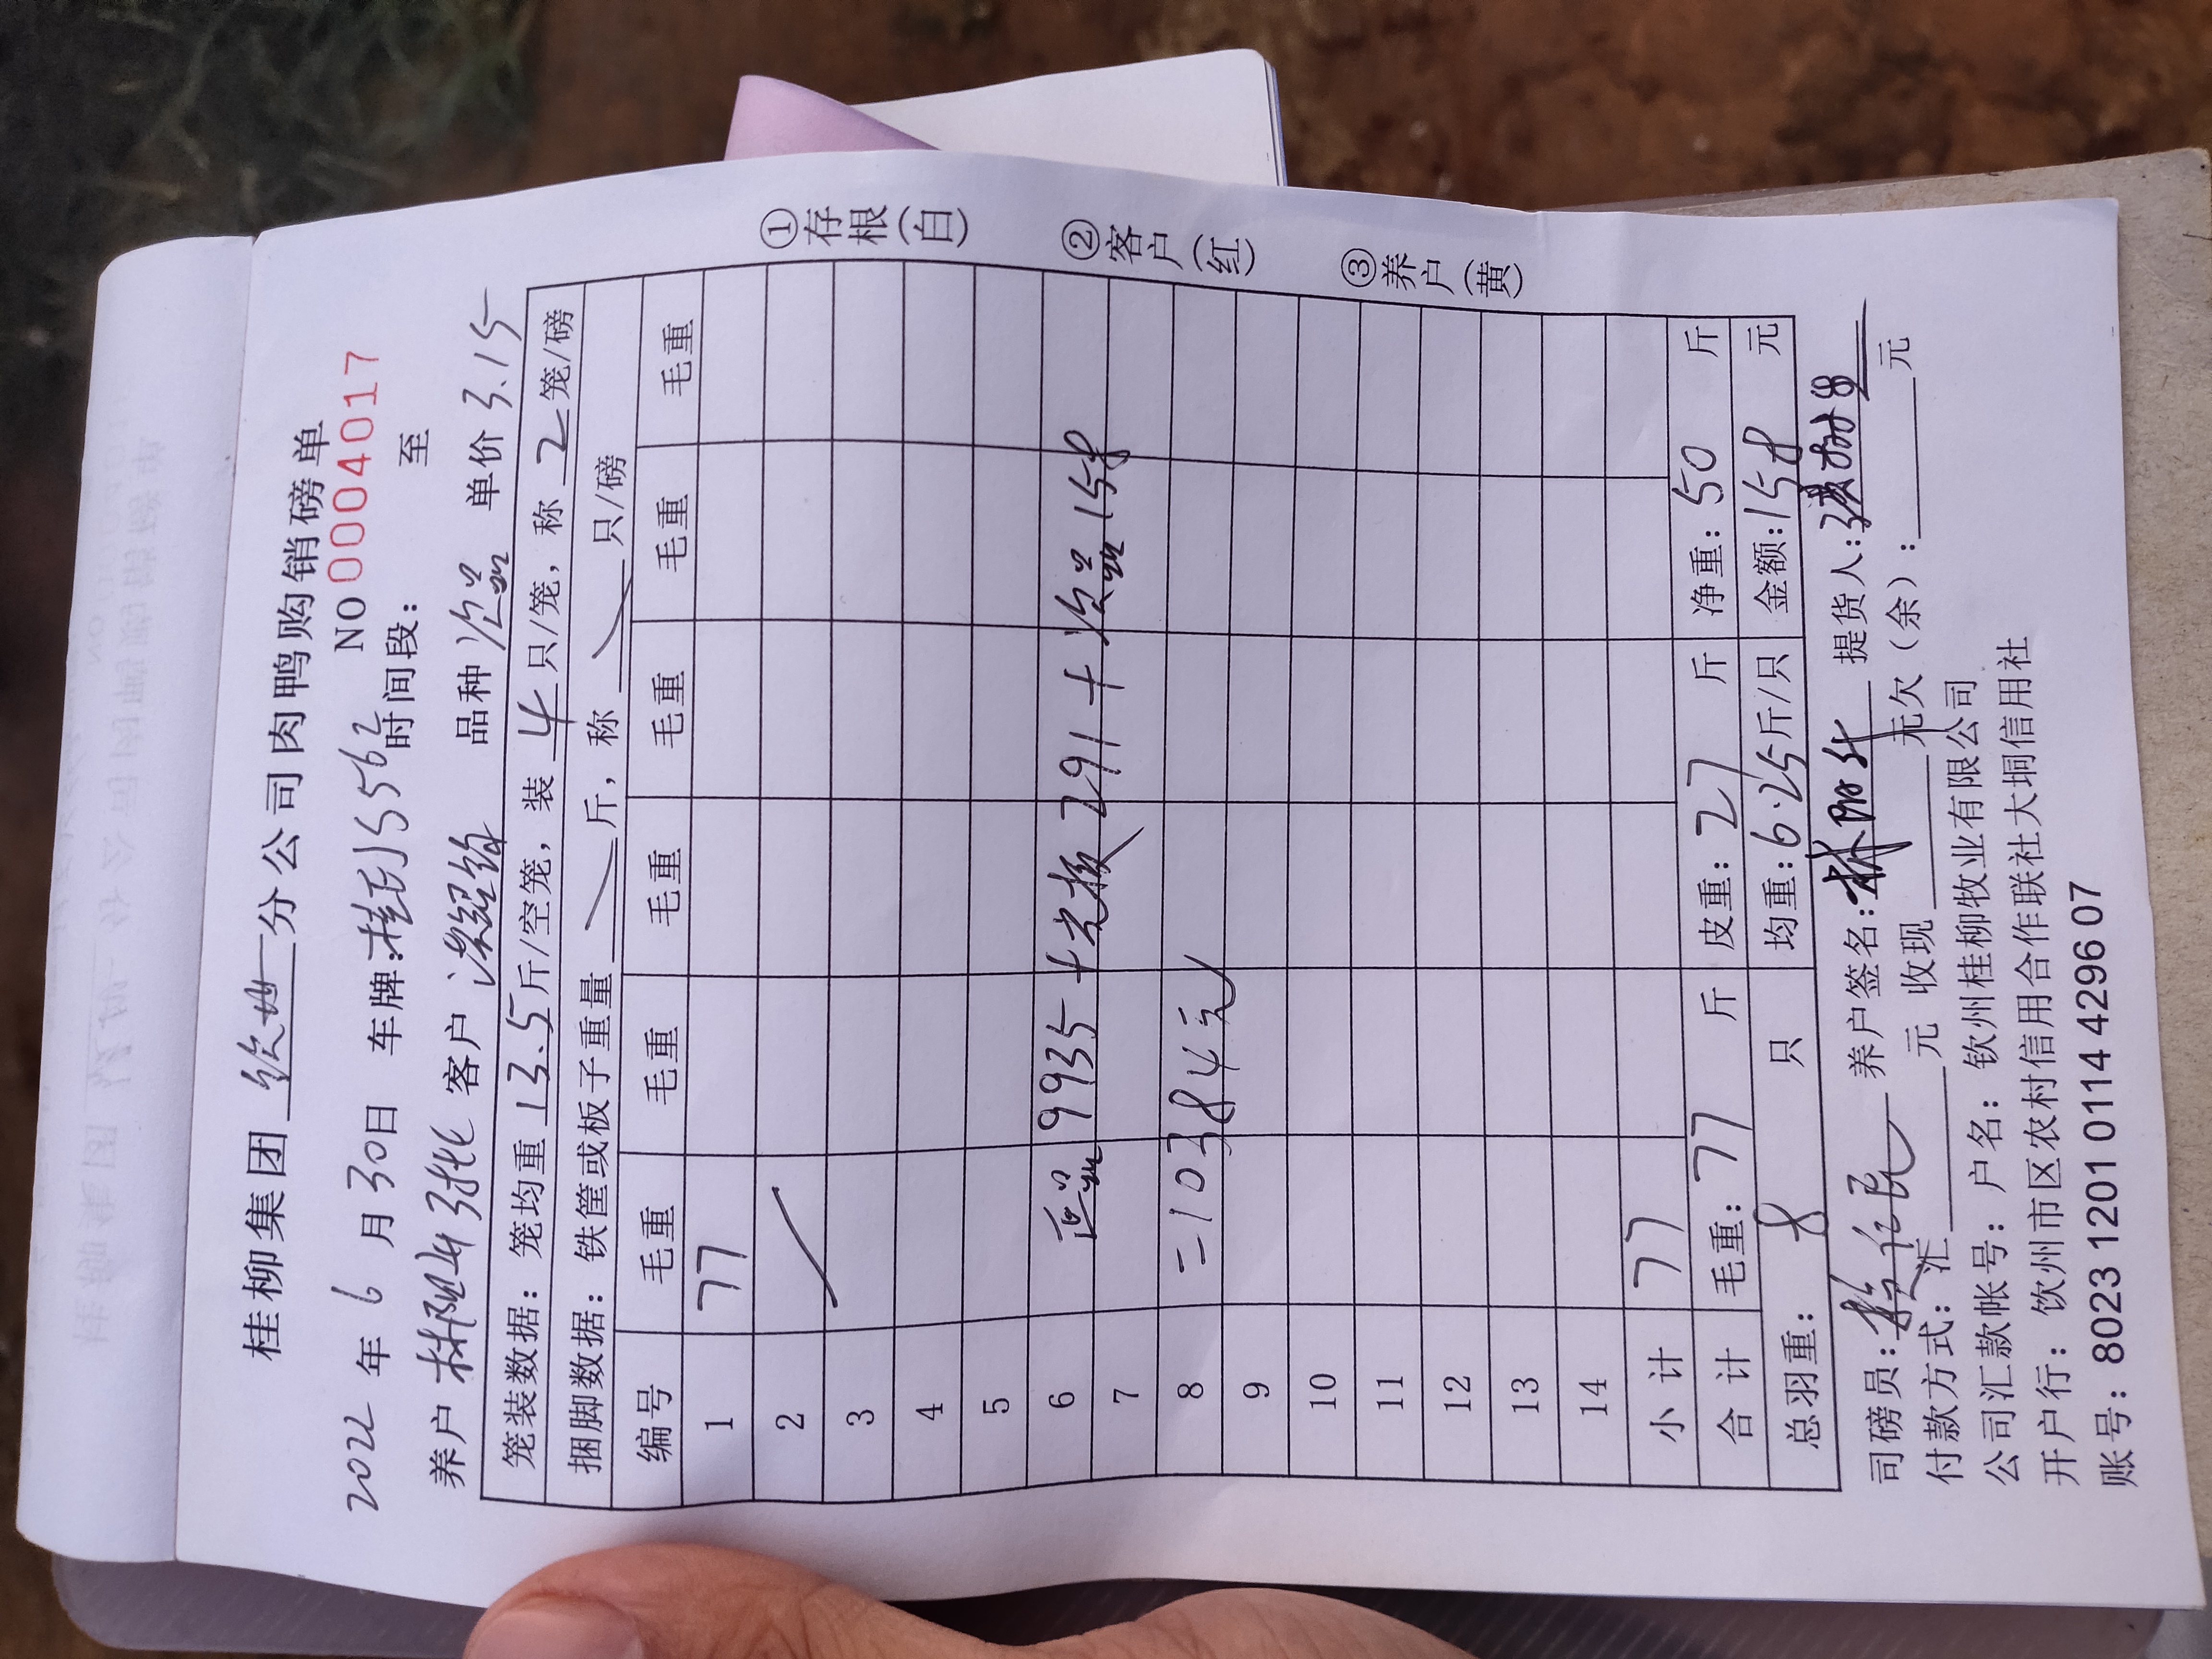 桂柳集团 钦州 分公司肉鸭购销磅单
NO 0004017
2022 年 6 月 30日 车牌: 桂 J 5562 时间段: 至
养户 林 客户 梁绍 品种 次品 单价 3.15
笼装数据: 笼均重 13.5 斤/空笼, 装 4 只/笼, 称 2 笼/磅
捆脚数据: 铁筐或板子重量 斤, 称 只/磅
编号 毛重 毛重 毛重 毛重 毛重 毛重
1 77
2
3
4
5
6 正品 9935 + 291 + 次品 158
7
8 = 10384元
9
10
11
12
13
14
小计 77
合计 毛重: 77 斤 皮重: 27 斤 净重: 50 斤
总羽重: 8 只 均重: 6.25 斤/只 金额: 158 元
司磅员: 养户签名: 林 提货人:
付款方式: 汇 元 收现 元欠(余): 元
公司汇款帐号: 户名: 钦州桂柳牧业有限公司
开户行: 钦州市区农村信用合作联社大垌信用社
账号: 8023 1201 0114 4296 07
①存根(白)
②客户(红)
③养户(黄)